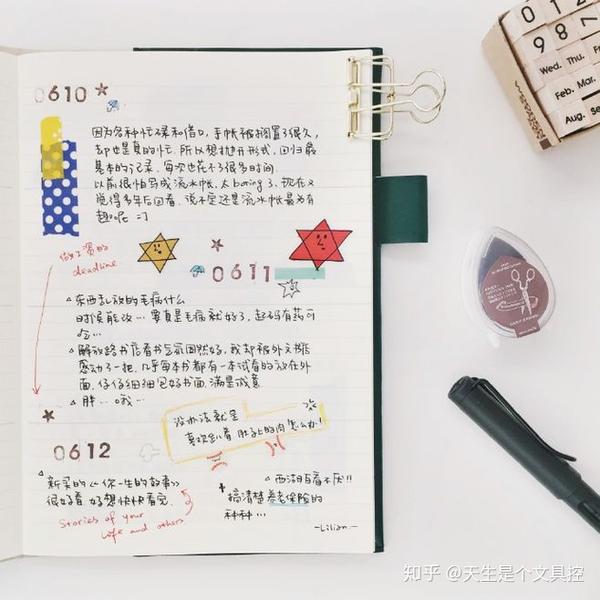 0610
因为各种忙碌和借口,手帐被搁置了很久,
却也是真的忙.所以想抛开形式,回归最
基本的记录.每次也花不了很多时间.
以前很怕写成流水帐,太boring了.现在又
觉得多年后回看,说不定还是流水帐最为有
趣呢 =J
做工资的
deadline
0611
东西乱放的毛病什么
时候能改…要真是毛病就好了,起码有药可
解放路书店看书气氛固然好,我却被外文书店
感动了一把.几乎每本书都有一本试看的放在外
面.仔仔细细包好书面.满是诚意
胖…哦…
没办法就是
喜欢趴着 肚子上的肉怎么办!
0612
新买的《你一生的故事》
很好看.好想快快看完.
Stories of your
Life and others
西湖百看不厌!!
搞清楚养老保险的
种种…
-Lilian-
0 1 2
9 8 7
Wed. Thu. F
Feb. Mar.
Aug. Se
知乎 @天生是个文具控